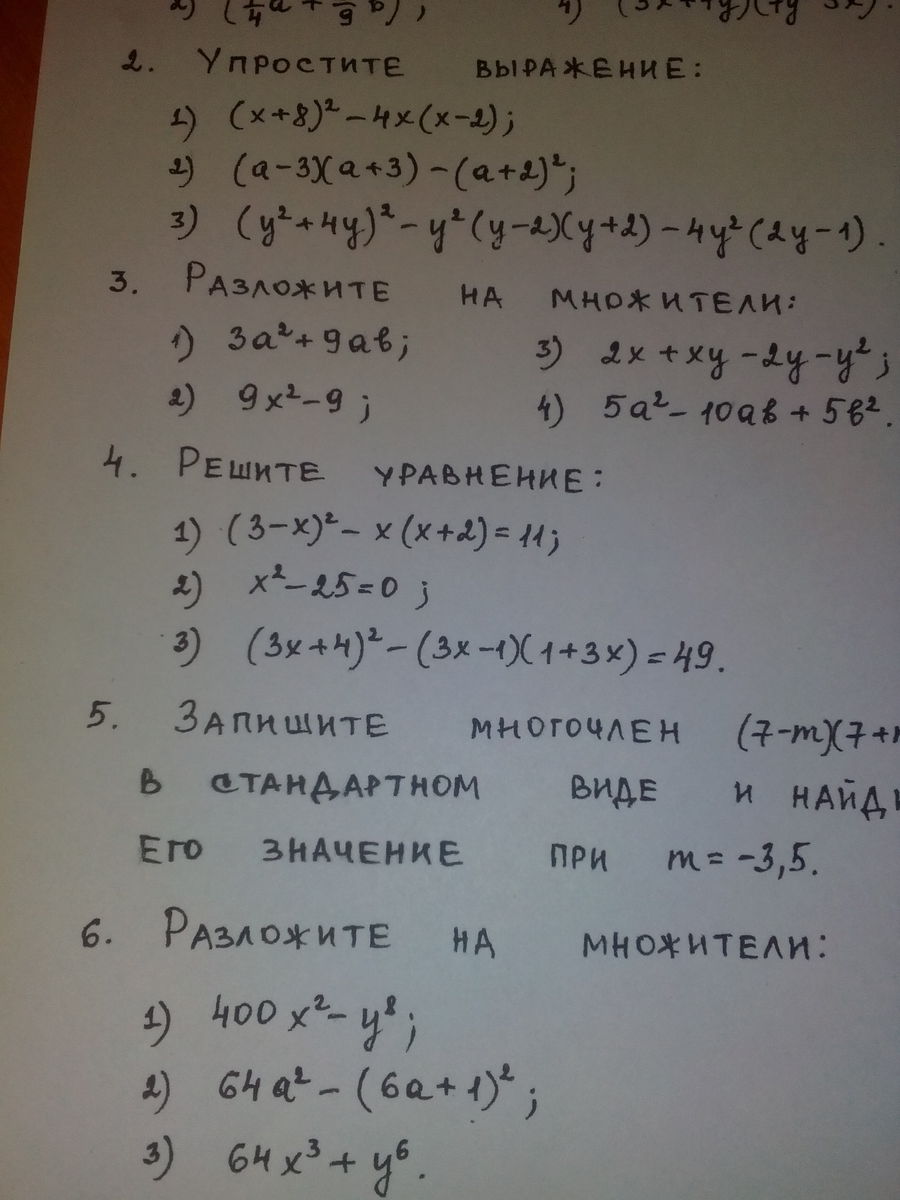 2) (1/4 a + 1/9 b)², 4) (3x+4y)(4y-3x).
2. Упростите выражение:
1) (x+8)² - 4x(x-2);
2) (a-3)(a+3) - (a+2)²;
3) (y²+4y)² - y²(y-2)(y+2) - 4y²(2y-1).
3. Разложите на множители:
1) 3a² + 9ab; 3) 2x + xy - 2y - y²;
2) 9x² - 9; 4) 5a² - 10ab + 5b².
4. Решите уравнение:
1) (3-x)² - x(x+2) = 11;
2) x² - 25 = 0;
3) (3x+4)² - (3x-1)(1+3x) = 49.
5. Запишите многочлен (7-m)(7+
в стандартном виде и найди
его значение при m = -3,5.
6. Разложите на множители:
1) 400x² - y⁸;
2) 64a² - (6a+1)²;
3) 64x³ + y⁶.